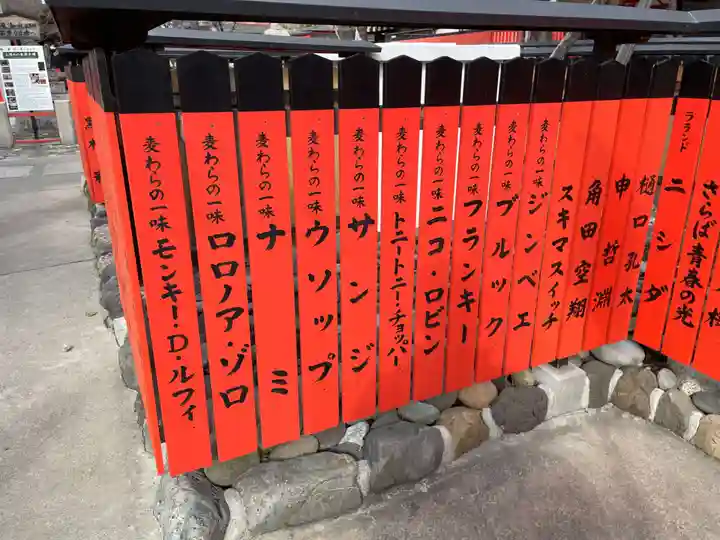 麦わらの一味 モンキー・D・ルフィ
麦わらの一味 ロロノア・ゾロ
麦わらの一味 ナミ
麦わらの一味 ウソップ
麦わらの一味 サンジ
麦わらの一味 トニートニー・チョッパー
麦わらの一味 ニコ・ロビン
麦わらの一味 フランキー
麦わらの一味 ブルック
麦わらの一味 ジンベエ
スキマスイッチ
角田空翔
申哲淵
樋口孔太
ラランド ニシダ
さらば青春の光